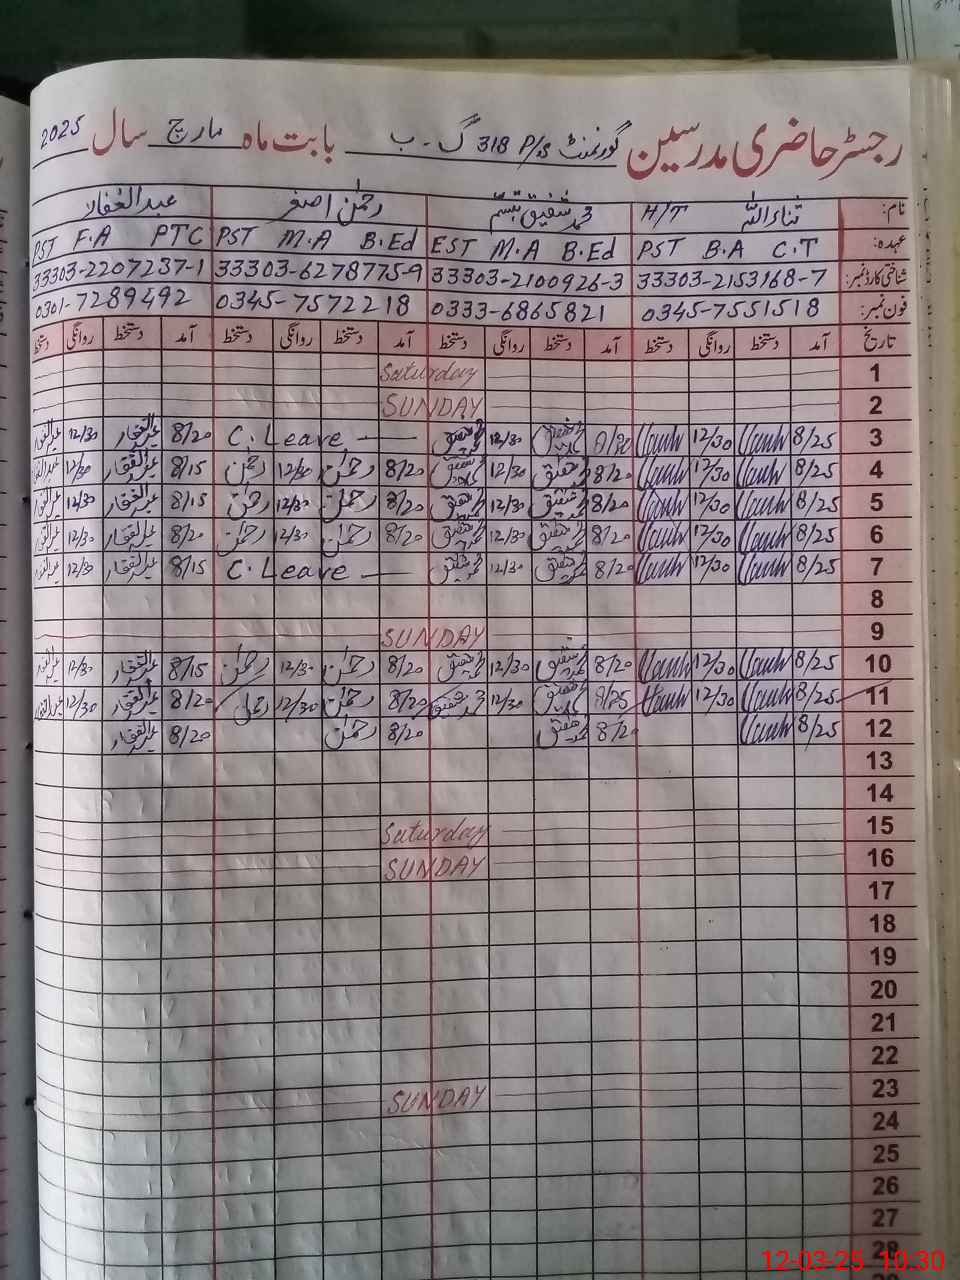 رجسٹر حاضری مدرسین گورنمنٹ P/S 318 گ۔ب بابت ماہ مارچ سال 2025
نام: ثناء اللہ H/T محمد شفیق تبسم رحمٰن اصغر عبدالغفار
عہدہ: PST B.A C.T EST M.A B.Ed PST M.A B.Ed PST F.A PTC
شناختی کارڈ نمبر: 33303-2153168-7 33303-2100926-3 33303-6278775-9 33303-2207237-1
فون نمبر: 0345-7551518 0333-6865821 0345-7572218 0301-7289492
تاریخ آمد دستخط روانگی دستخط آمد دستخط روانگی دستخط آمد دستخط روانگی دستخط آمد دستخط روانگی دستخط
1 Saturday
2 SUNDAY
3 8/25 12/30 8/20 شفیق 12/30 شفیق C. Leave 8/20 عبدالغفار 12/30 عبدالغفار
4 8/25 12/30 8/20 شفیق 12/30 شفیق 8/20 رحمٰن 12/30 رحمٰن 8/15 عبدالغفار 12/30 عبدالغفار
5 8/25 12/30 8/20 شفیق 12/30 شفیق 8/20 رحمٰن 12/30 رحمٰن 8/15 عبدالغفار 12/30 عبدالغفار
6 8/25 12/30 8/20 شفیق 12/30 شفیق 8/20 رحمٰن 12/30 رحمٰن 8/20 عبدالغفار 12/30 عبدالغفار
7 8/25 12/30 8/20 شفیق 12/30 شفیق C. Leave 8/15 عبدالغفار 12/30 عبدالغفار
8
9 SUNDAY
10 8/25 12/30 8/20 شفیق 12/30 شفیق 8/20 رحمٰن 12/30 رحمٰن 8/15 عبدالغفار 12/30 عبدالغفار
11 8/25 12/30 8/25 شفیق 12/30 شفیق 8/20 رحمٰن 12/30 رحمٰن 8/20 عبدالغفار 12/30 عبدالغفار
12 8/25 8/20 شفیق 8/20 رحمٰن 8/20 عبدالغفار
13
14
15 Saturday
16 SUNDAY
17
18
19
20
21
22
23 SUNDAY
24
25
26
27
28
12-03-25 10:30